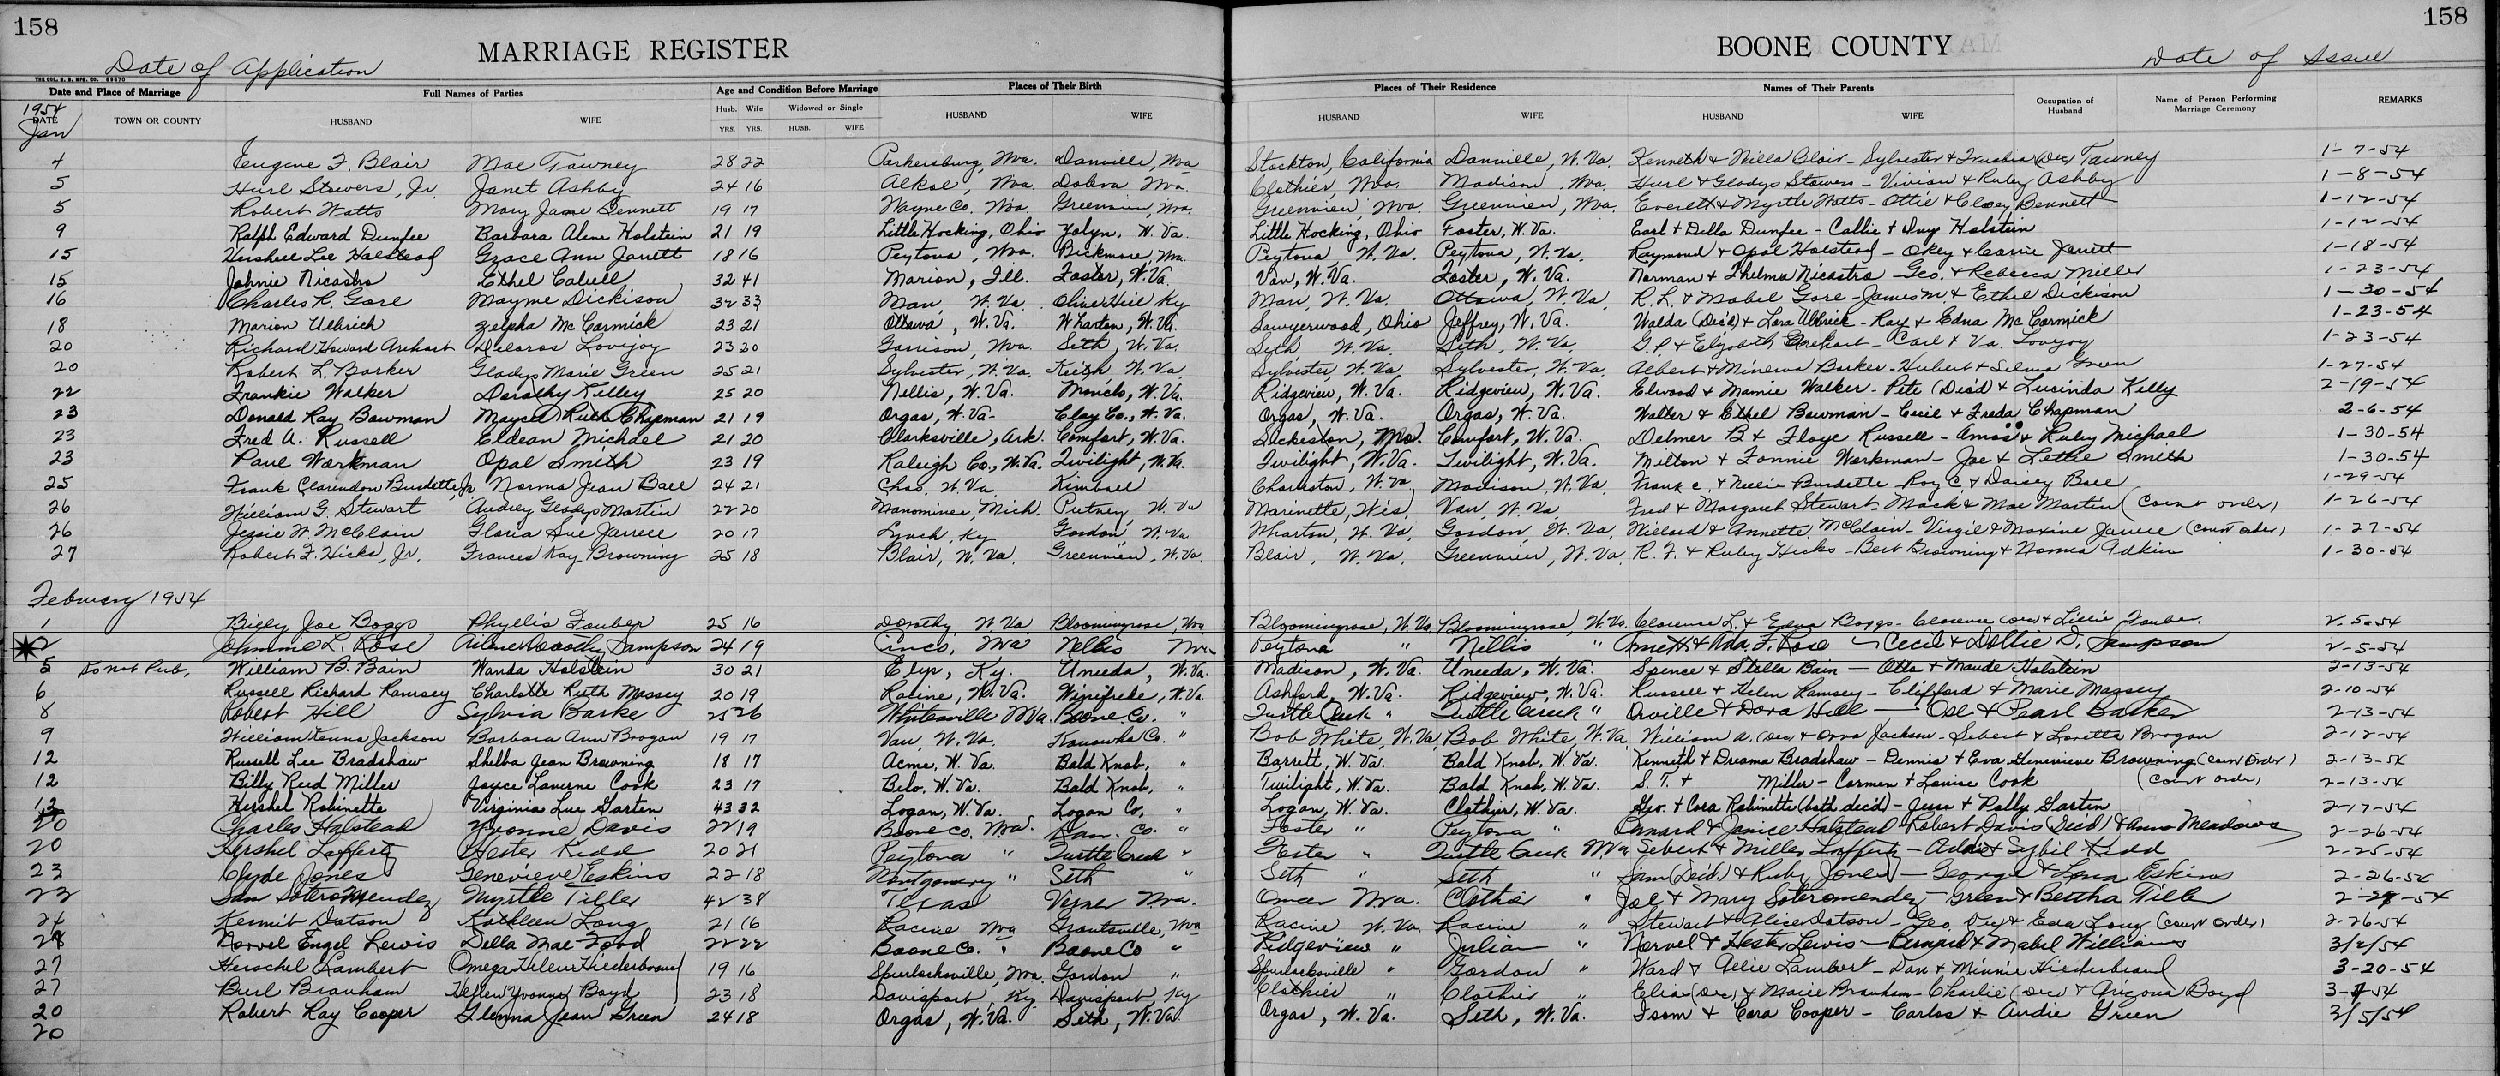 158 158
MARRIAGE REGISTER BOONE COUNTY
Date of Application Date of Issue
THE COL. B. B. MFG. CO. 69570
Date and Place of Marriage Full Names of Parties Age and Condition Before Marriage Places of Their Birth Places of Their Residence Names of Their Parents Occupation of Husband Name of Person Performing Marriage Ceremony REMARKS
1954 Husb. Wife Widowed or Single
DATE TOWN OR COUNTY HUSBAND WIFE YRS. YRS. HUSB. WIFE HUSBAND WIFE HUSBAND WIFE HUSBAND WIFE
Jan
4 Eugene F. Blair Mae Tawney 28 22 Parkersburg, Wva. Danville, Wva Stockton, California Danville, W. Va. Kenneth & Nilla Blair - Sylvester & (Dec) Tawney 1-7-54
5 Hurl Stowers, Jr. Janet Ashby 24 16 Alkol, Wva. Dobra Wva. Clothier, Wva. Madison, Wva. Hurl & Gladys Stowers - Vivian & Ruby Ashby 1-8-54
5 Robert Watts Mary Jane Bennett 19 17 Wayne Co. Wva. Greenview, Wva. Greenview, Wva. Greenview, Wva. Everett & Myrtle Watts - Ottie & Bennett 1-12-54
9 Ralph Edward Dunfee Barbara Alene Holstein 21 19 Little Hocking, Ohio Yolyn, W. Va. Little Hocking, Ohio Foster, W. Va. Earl & Della Dunfee - Callie & Holstein 1-12-54
15 Hershell Lee Halstead Grace Ann Jarrett 18 16 Peytona, Wva. Bickmore, Wva. Peytona, W. Va. Peytona, W. Va. Raymond & Opal Halstead - Okey & Carrie Jarrett 1-18-54
15 Johnie Nicastro Ethel Cabell 32 41 Marion, Ill. Foster, W. Va. Van, W. Va. Foster, W. Va. Norman & Thelma Nicastro - Geo. & Rebecca Miller 1-23-54
16 Charles R. Gore Mayme Dickison 32 33 Man, W. Va. Olive Hill Ky Man, W. Va. Ottawa, W. Va. R. L. & Mabel Gore - James M. & Ethel Dickison 1-30-54
18 Marion Ulbrich Zelpha McCormick 23 21 Ottawa, W. Va. Wharton, W. Va. Sawyerwood, Ohio Jeffrey, W. Va. Walda (Dec'd) & Lora Ulbrick - Ray & Edna McCormick 1-23-54
20 Richard Howard Arehart Deloras Lovejoy 23 20 Garrison, Wva. Seth, W. Va. Seth W. Va. Seth, W. Va. G. P. & Elizabeth Arehart - Carl & Va. Lovejoy 1-23-54
20 Robert L. Barker Gladys Marie Green 25 21 Sylvester, W. Va. Keith, W. Va. Sylvester, W. Va. Sylvester, W. Va. Albert & Minerva Barker - Hubert & Selma Green 1-27-54
22 Frankie Walker Dorothy Kelley 25 20 Nellis, W. Va. W. Va. Ridgeview, W. Va. Ridgeview, W. Va. Elwood & Mamie Walker - Pete (Dec'd) & Lucinda Kelly 2-19-54
23 Donald Ray Bowman Maycel Ruth Chapman 21 19 Orgas, W. Va. Clay Co., W. Va. Orgas, W. Va. Orgas, W. Va. Walter & Ethel Bowman - Cecil & Freda Chapman 2-6-54
23 Fred A. Russell Eldean Michael 21 20 Clarksville, Ark. Comfort, W. Va. Mo. Comfort, W. Va. Delmer B. & Floye Russell - Amos & Ruby Michael 1-30-54
23 Paul Workman Opal Smith 23 19 Raleigh Co., W. Va. Twilight, W. Va. Twilight, W. Va. Twilight, W. Va. Milton & Fannie Workman - Joe & Lethie Smith 1-30-54
25 Frank Clarendon Burdette, Jr. Norma Jean Ball 24 21 Chas. W. Va. Kimball Charleston, W. Va Madison, W. Va. Frank C. & Nellie Burdette - Roy C. & Daisey Ball 1-29-54
26 William G. Stewart Audrey Gladys Martin 22 20 Manominee, Mich. Putney, W. Va Marinette, Wis. Van, W. Va. Fred & Margaret Stewart - Mack & Mae Martin (Court order) 1-26-54
26 Jessie W. McClain Gloria Sue Jarrell 20 17 Lynch, Ky Gordon, W. Va Wharton, W. Va. Gordon, W. Va. Willard & Annette McClain - Virgil & Maxine Jarrell (Court order) 1-27-54
27 Robert F. Hicks, Jr. Frances Kay Browning 25 18 Blair, W. Va. Greenview, W. Va. Blair, W. Va. Greenview, W. Va. R. F. & Ruby Hicks - Bert Browning & Norma Adkins 1-30-54
February 1954
1 Billy Joe Boggs Phyllis Fauber 25 16 Dorothy W. Va Bloomingrose, Wva Bloomingrose, W. Va. Bloomingrose, W. Va. Clarence L. & Edna Boggs - Clarence (Dec) & Lillie Fauber. 2-5-54
2 Johnnie L. Rose Dorothy Sampson 24 19 Cinco, Wva Nellis Wva Peytona " Nellis " & Ada F. Rose - Cecil & Dollie D. Sampson 2-5-54
5 Do not Pub. William B. Bain Wanda Holstein 30 21 Elys, Ky. Uneeda, W. Va. Madison, W. Va. Uneeda, W. Va. Spence & Stella Bain - Otta & Maude Holstein 2-13-54
6 Russell Richard Ramsey Charlotte Ruth Massey 20 19 Racine, W. Va. Winifrede, W. Va. Ashford, W. Va. Ridgeview, W. Va. Russell & Helen Ramsey - Clifford & Marie Massey 2-10-54
8 Robert Hill Sylvia Barke 25 26 Whitesville Wva. Boone Co. " Turtle Creek " Turtle Creek " Orville & Dora Hill - & Pearl Barker 2-13-54
9 William Jackson Barbara Ann Brogan 19 17 Van, W. Va. Kanawha Co. " Bob White, W. Va. Bob White, W. Va. William A. (Dec) & Orva Jackson - Sebert & Loretta Brogan 2-12-54
12 Russell Lee Bradshaw Shelba Jean Browning 18 17 Acme, W. Va. Bald Knob, " Barrett, W. Va. Bald Knob, W. Va. Kenneth & Drema Bradshaw - Dennis & Eva Genevieve Browning (Court Order) 2-13-54
12 Billy Reed Miller Joyce Laverne Cook 23 17 Belo, W. Va. Bald Knob, " Twilight, W. Va. Bald Knob, W. Va. S. T. & Miller - Carmen & Louise Cook (Court order) 2-13-54
13 Hershel Robinette Virginia Lue Garten 43 32 Logan, W. Va. Logan Co, " Logan, W. Va. Clothier, W. Va. Geo. & Cora Robinette (both dec'd) - Jess & Polly Garten 2-17-54
20 Charles Halstead Yvonne Davis 22 19 Boone Co. Wva. Kan. Co. " Foster " Peytona " & Janice Halstead - Robert Davis (Dec'd) & Anna Meadows 2-26-54
20 Hershel Lafferty Hester Kidd 20 21 Peytona " Turtle Creek " Foster " Turtle Creek Wva Sebert & Lafferty - & Sybil Kidd 2-25-54
23 Clyde Jones Genevieve Eskins 22 18 Montgomery " Seth " Seth " Seth " Sam (Dec'd) & Ruby Jones - George & Lena Eskins 2-26-54
23 Sam Soteromendez Myrtle Tiller 42 38 Texas Wva. Omar Wva. Clothier " Joe & Mary Soteromendez - Green & Bertha Tiller 2-27-54
24 Kermit Dotson Kathleen Long 21 16 Racine Wva Grantsville, Wva Racine W. Va. Racine " Stewart & Alice Dotson - Geo. Dec & Eva Long (Court Order) 2-26-54
Norvel Engel Lewis Della Mae Food 22 22 Boone Co. " Boone Co " Ridgeview " Julian " Norvel & Hester Lewis - & Mabel Williams 3/2/54
27 Herschel Lambert Omega Helene Hiederbrand 19 16 Spurlockville, Wva. Gordon " Spurlockville " Gordon " Ward & Lambert - Dan & Minnie Hiederbrand 3-20-54
27 Burl Branham Helen Yvonne Boyd 23 18 Davisport, Ky. Davisport, Ky Clothier " Clothier " Elia (Dec) & Macie Branham - Charlie (Dec) & Arizona Boyd 3-1-54
20 Robert Ray Cooper Glenna Jean Green 24 18 Orgas, W. Va. Seth, W. Va Orgas, W. Va. Seth, W. Va. Isom & Cora Cooper - Carlos & Audie Green 3/5/54
20